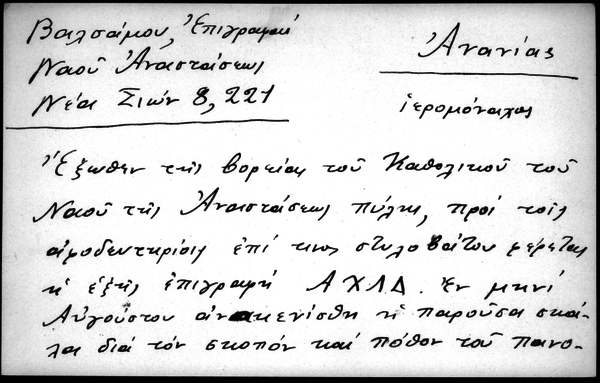 Βαλσάμου, Ἐπιγραφαί
Ναοῦ Ἀναστάσεως
Νέα Σιών 8, 221
Ἀνανίας
ἱερομόναχος
Ἔξωθεν τῆς βορείας τοῦ Καθολικοῦ τοῦ
Ναοῦ τῆς Ἀναστάσεως πύλης, πρὸς τοῖς
ἐπί τινος στυλοβάτου φέρεται
ἡ ἑξῆς ἐπιγραφή ΑΧΛΔ. Ἐν μηνί
Αὐγούστου ἀνακενίσθη ἡ παροῦσα σκά-
λα διά τόν σκοπόν καί πόθον τοῦ πανο-